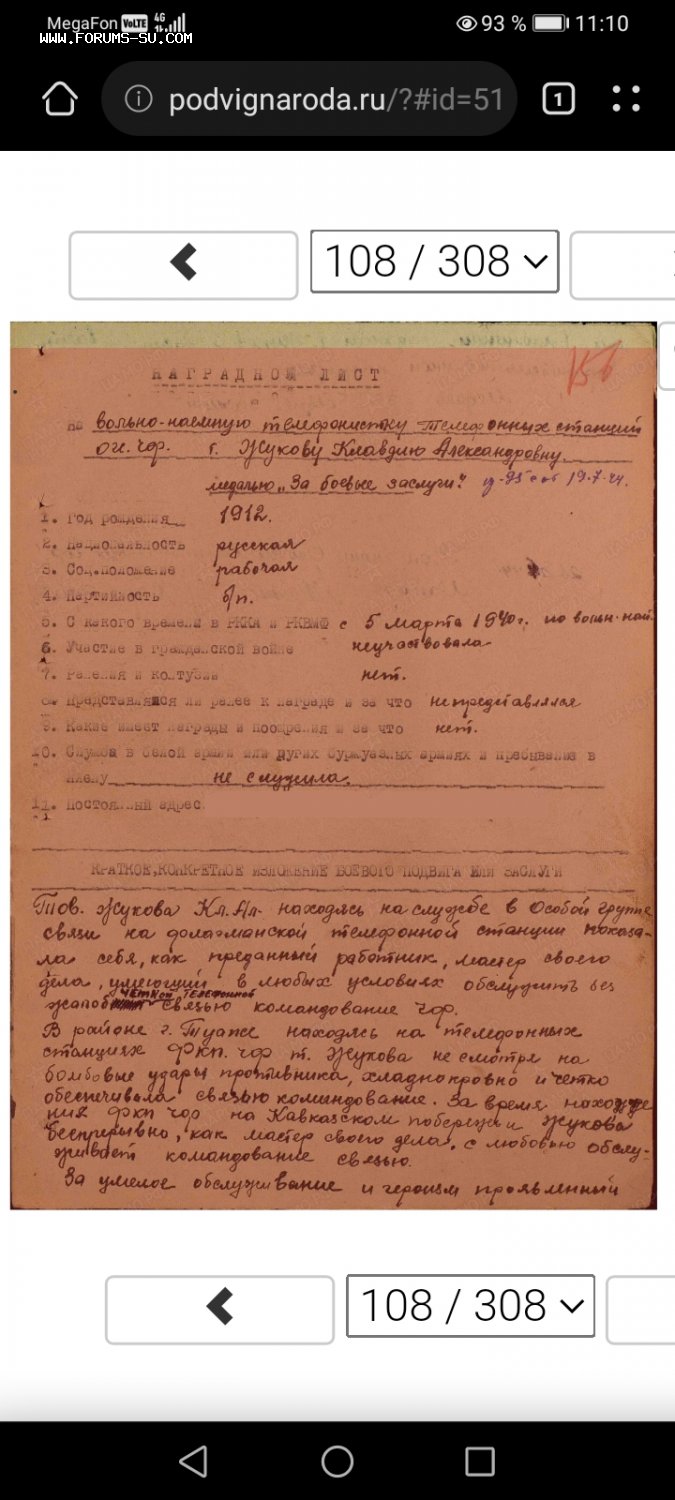 MegaFon VoLTE 4G 93 % 11:10
www.FORUMS-SU.COM
podvignaroda.ru/?#id=51
1
108 / 308
156
НАГРАДНОЙ ЛИСТ
на вольно-наемную телефонистку телефонных станций
г. Жукову Клавдию Александровну
медалью „За боевые заслуги".
1. Год рождения 1912.
2. Национальность русская
3. Соц.положение рабочая
4. Партийность б/п.
5. С какого времени в РККА и РКВМФ с 5 марта 1940г. по вольн. най.
6. Участие в гражданской войне неучаствовала
7. Ранения и контузии нет.
8. Представлялся ли ранее к награде и за что непредставлялся
9. Какие имеет награды и поощрения и за что нет.
10. Служба в белой армии или других буржуазных армиях и пребывание в
плену не служила.
11. Постоянный адрес.
КРАТКОЕ,КОНКРЕТНОЕ ИЗЛОЖЕНИЕ БОЕВОГО ПОДВИГА ИЛИ ЗАСЛУГИ
Тов. Жукова Кл.Ал. находясь на службе в Особой группе
связи на флагманской телефонной станции показа-
ла себя, как преданный работник, мастер своего
дела, умеющий в любых условиях обслужить без
четкой телефонной
жалоб связью командование Чф.
В районе г. Туапсе находясь на телефонных
станциях ФКП. Чф т. Жукова не смотря на
бомбовые удары противника, хладнокровно и четко
обеспечивала связью командование. За время нахожде
ния ФКП Чф на Кавказском побережьи Жукова
беспрерывно, как мастер своего дела, с любовью обслу-
живает командование связью.
За умелое обслуживание и героизм проявленный
108 / 308